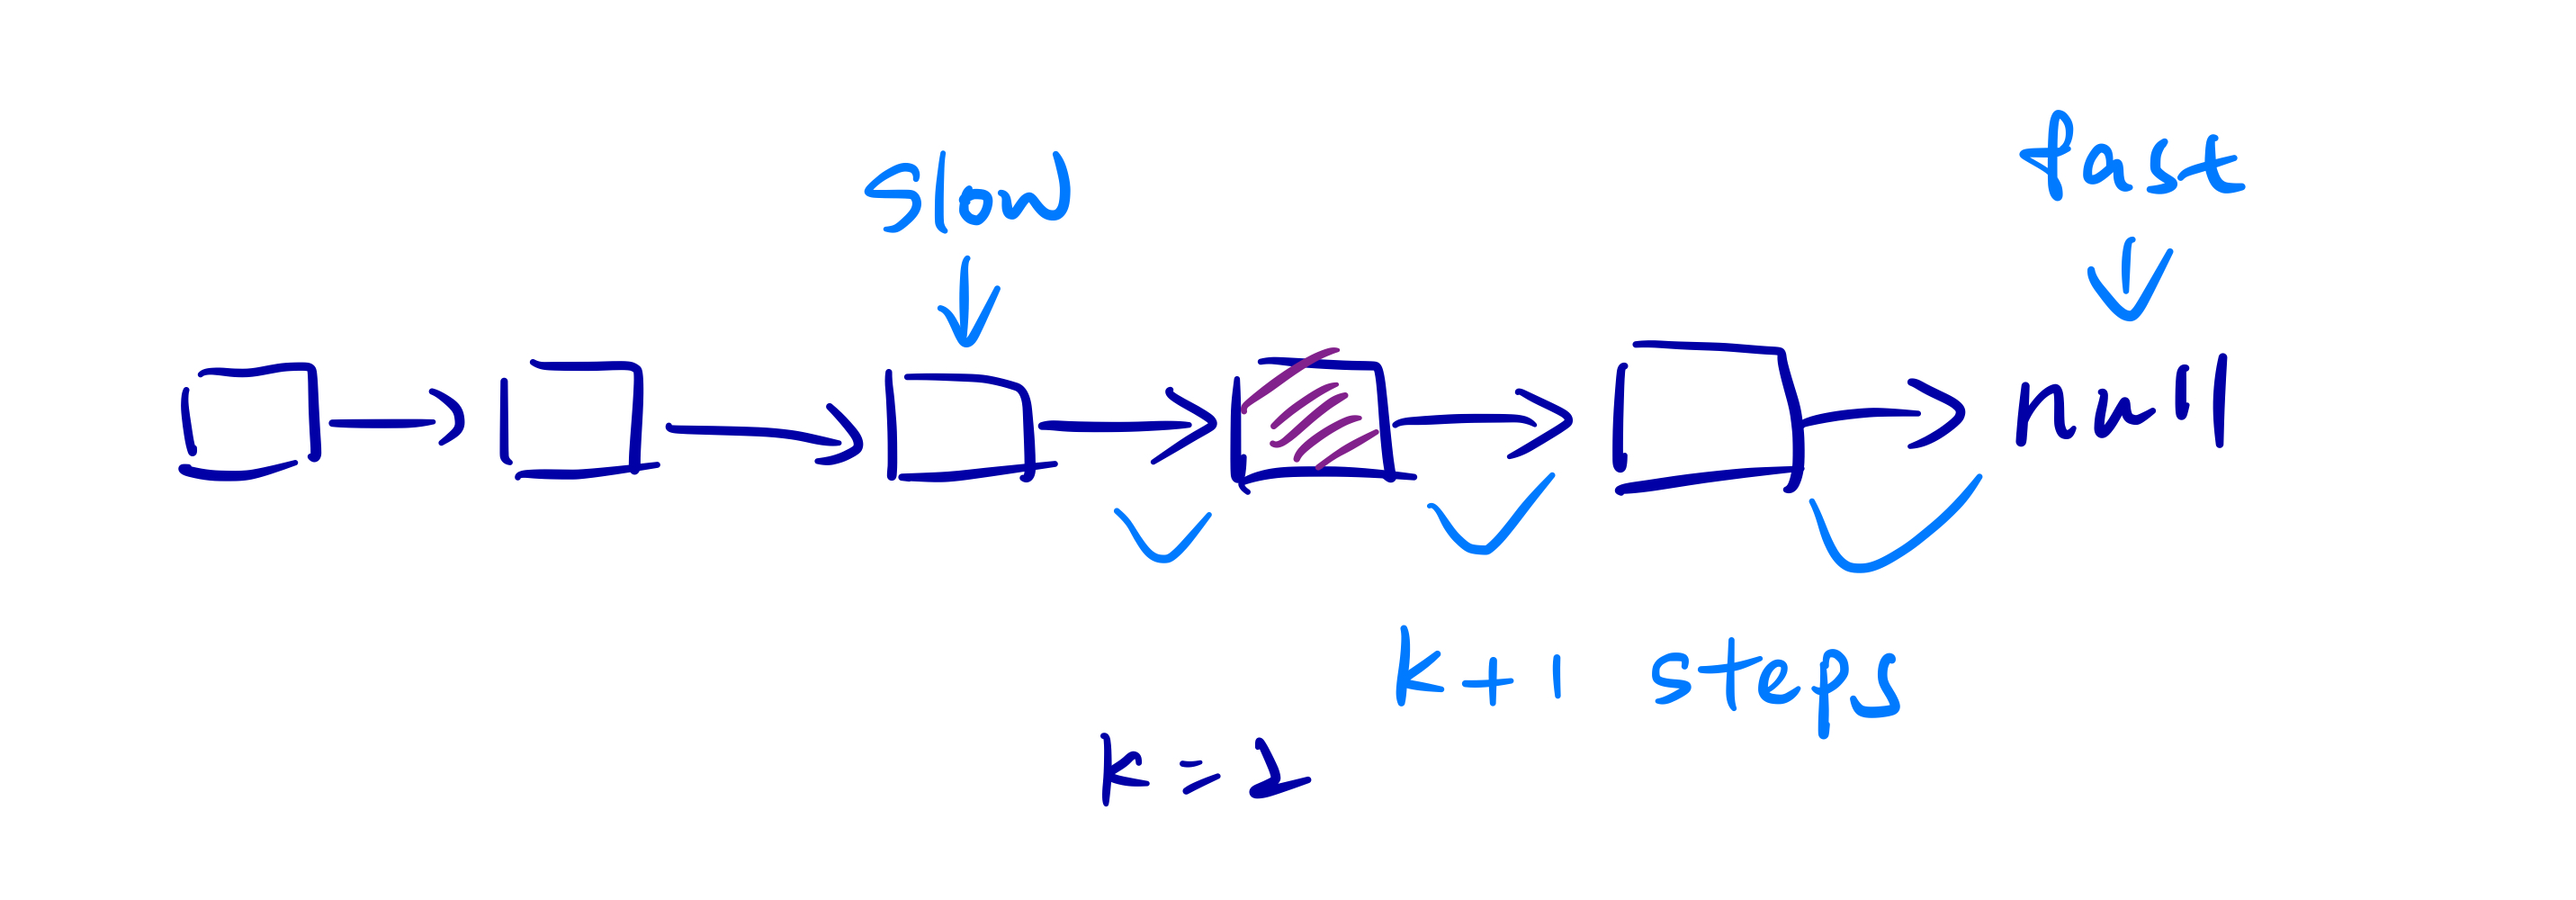 slow
fast
null
k+1 steps
k = 2